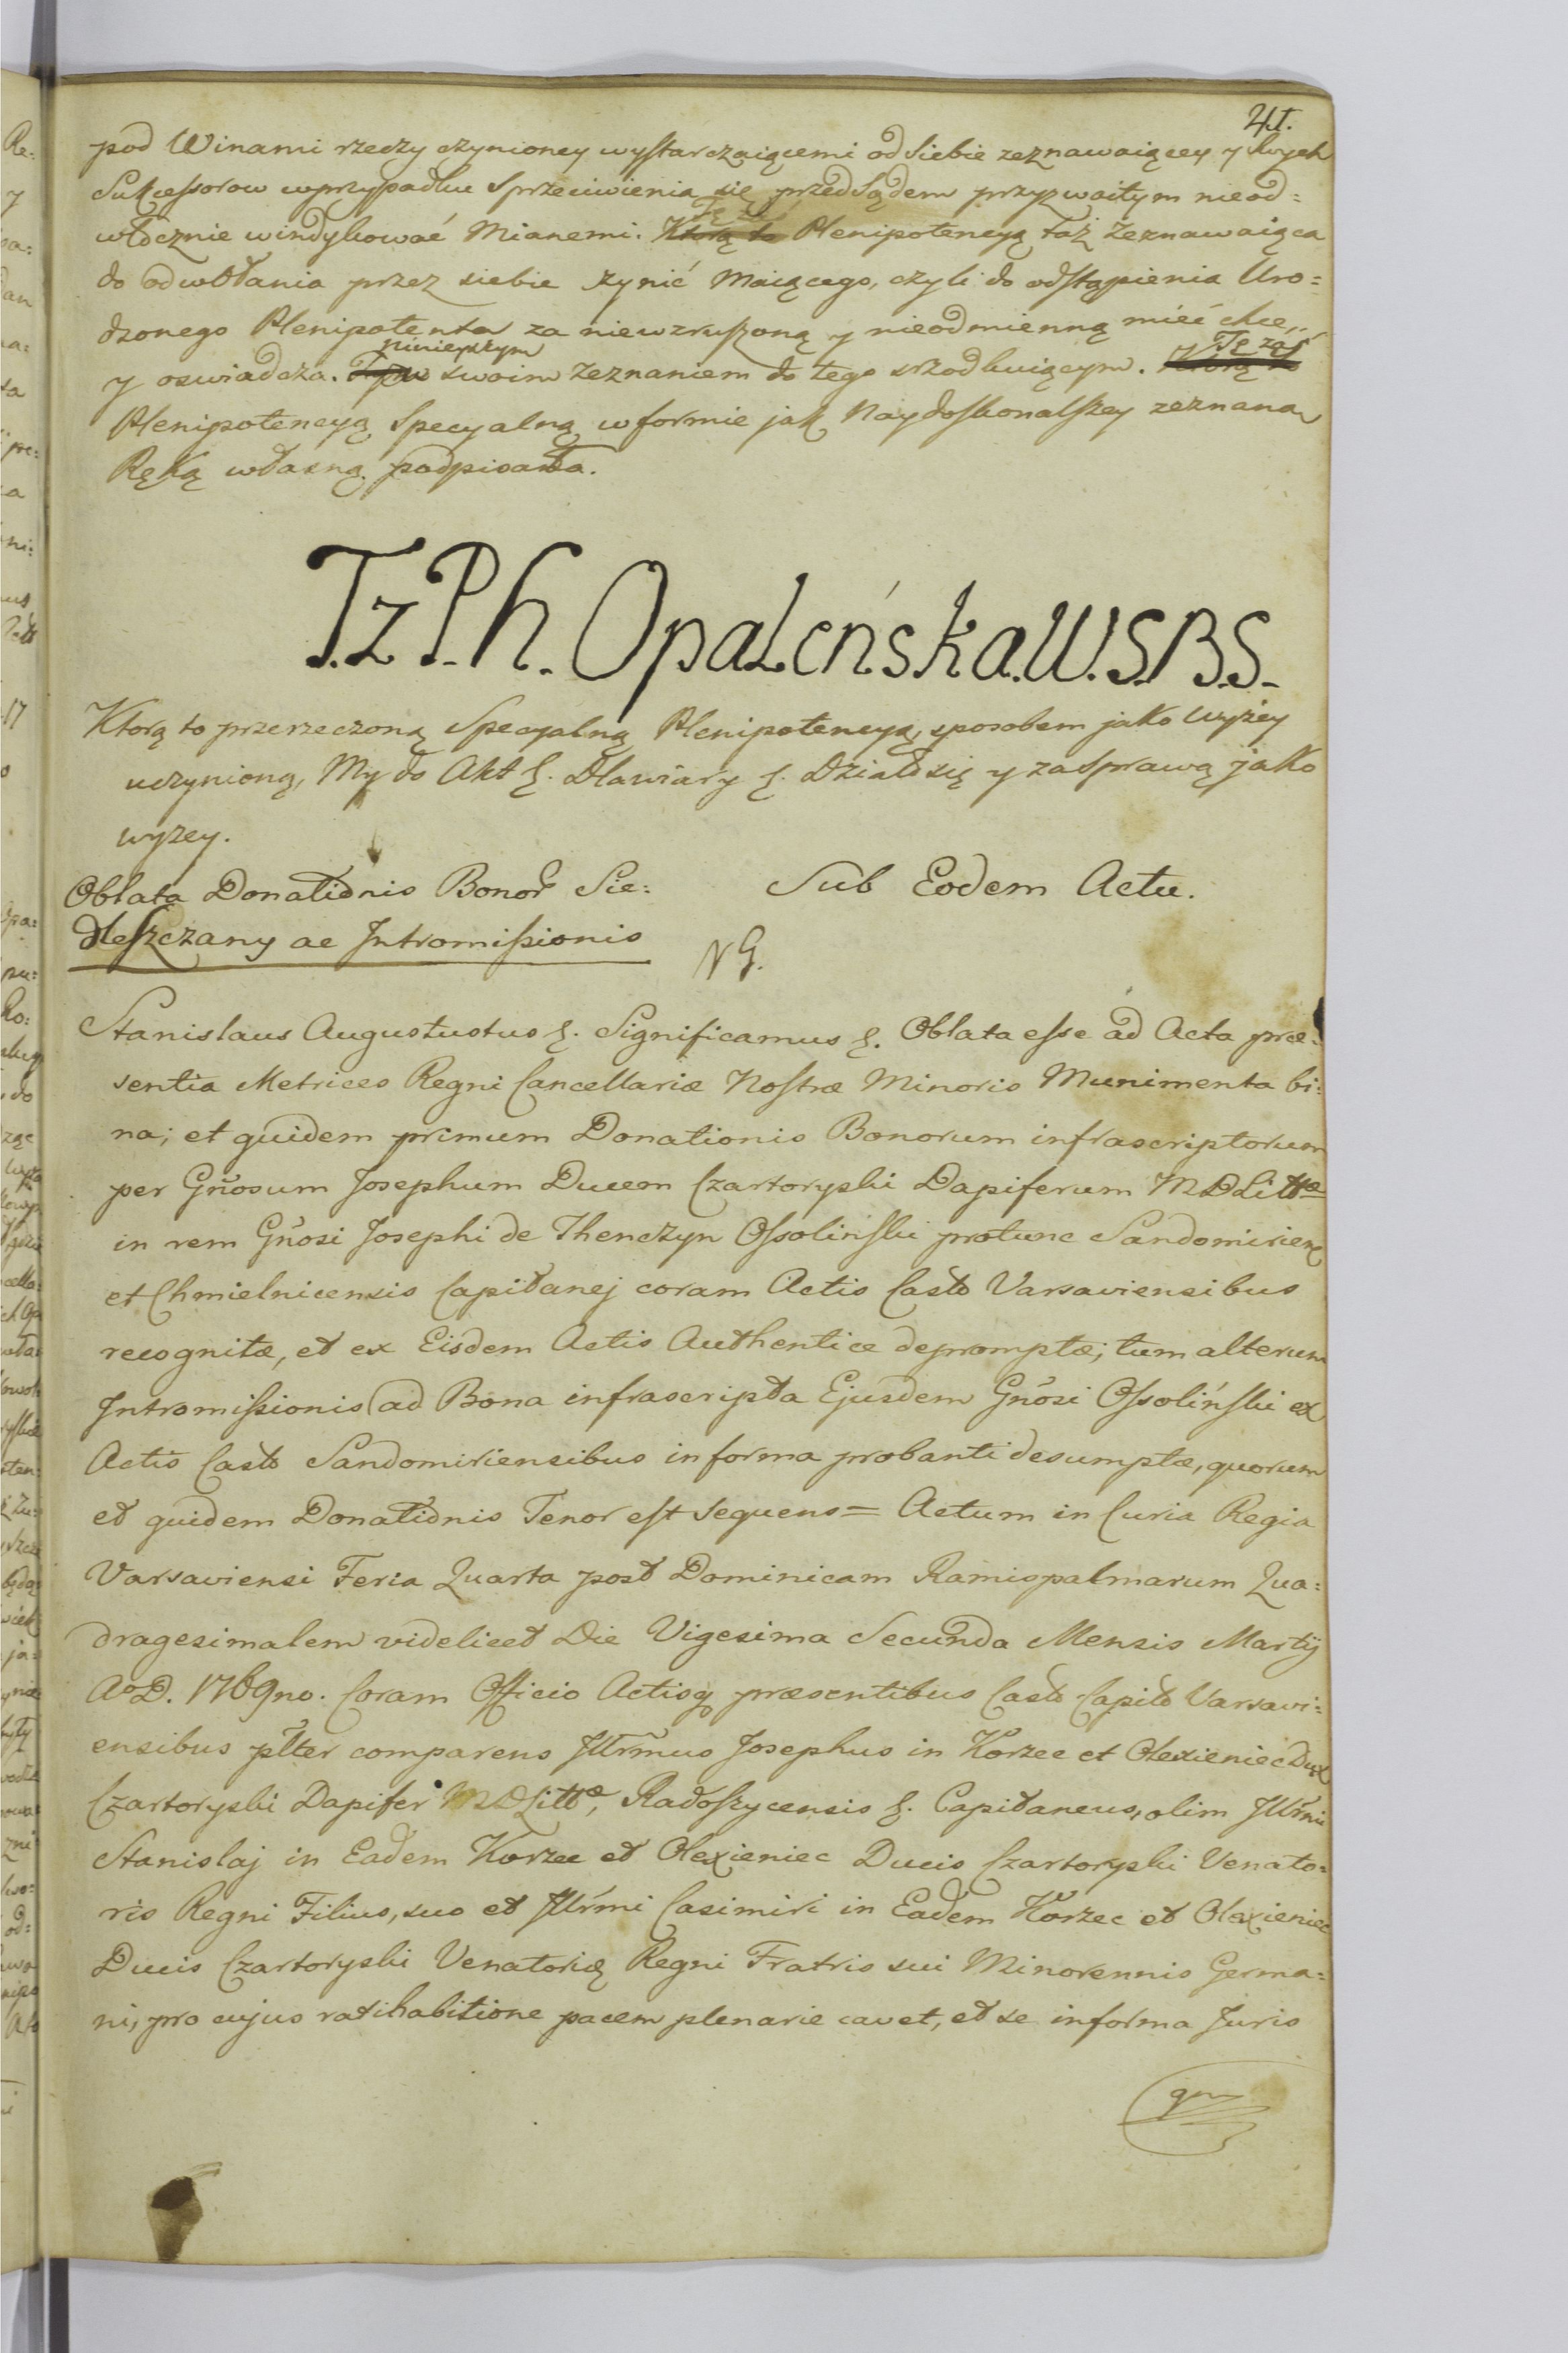 41.
pod Winami rzeczy czynioney wystarczaiącemi od siebie zeznawaiącey y swych
Sukcessorow w przypadku sprzeciwienia się przed Sądem przyzwoitym nieod=
Tę zaś
włocznie windykować Mianemi. Ktorą to Plenipotencyą taż Zeznawaiąca
do odwołania przez siebie czynić Maiącego, czyli do odstąpienia Uro=
dzonego Plenipotenta za niewzruszoną y nieodmienną mieć chce,
ninieyszym Tę zaś
y oswiadcza. swoim Zeznaniem do tego srzodkuiącym. Ktorą to
Plenipotencyą Specyalną w formie jak Naydoskonalszey zeznana
Ręką własną podpisała.
T.z P.h. OpaLeńska.W.S.B.S.
Ktorą to przerzeczoną Specyalną Plenipotencyą, sposobem jako wyżey
uczynioną, My do Akt &. Dla wiary &. Działo się y za sprawą jako
wyzey.
Oblata Donationis Bonor Sie:
Sub Eodem Actu.
dleszczany ac Intromissionis
NG.
Stanislaus Augustustus &. Significamus &. Oblata esse ad Acta præ:
sentia Metrices Regni Cancellariæ Nostræ Minoris Munimenta bi:
na; et quidem primum Donationis Bonorum infrascriptorum
per Gnosum Josephum Ducem Czartoryski Dapiferum MDLittæ
in rem Gnosi Josephi de Thenczyn Ossolinski protunc Sandomirien
et Chmielnicensis Capitanej coram Actis Castr Varsaviensibus
recognitæ, et ex Eisdem Actis Authentice depromptæ; tum alterum
Intromissionis ad Bona infrascripta Ejusdem Gnosi Ossoliński ex
Actis Castr Sandomiriensibus in forma probanti desumptæ, quorum
et quidem Donationis Tenor est sequens = Actum in Curia Regia
Varsaviensi Feria Quarta post Dominicam Ramispalmarum Qua:
dragesimalem videlicet Die Vigesima Secunda Mensis Martij
AoD. 1769no. Coram Officio Actisq præsentibus Castr Capit Varsavi:
ensibus plter comparens Jllrmus Josephus in Korzec et Olexieniec Dux
Czartoryski Dapifer MDLittæ, Radoszycensis &. Capitaneus, olim Jllrmi
Stanislaj in Eadem Korzec et Olexieniec Ducis Czartoryski Venato=
ris Regni Filius, suo et Jllrmi Casimiri in Eadem Korzec et Olexieniec
Ducis Czartoryski Venatorię Regni Fratris sui Minorennis Germa=
ni, pro cujus ratihabitione pacem plenarie cavet, et se in forma Juris